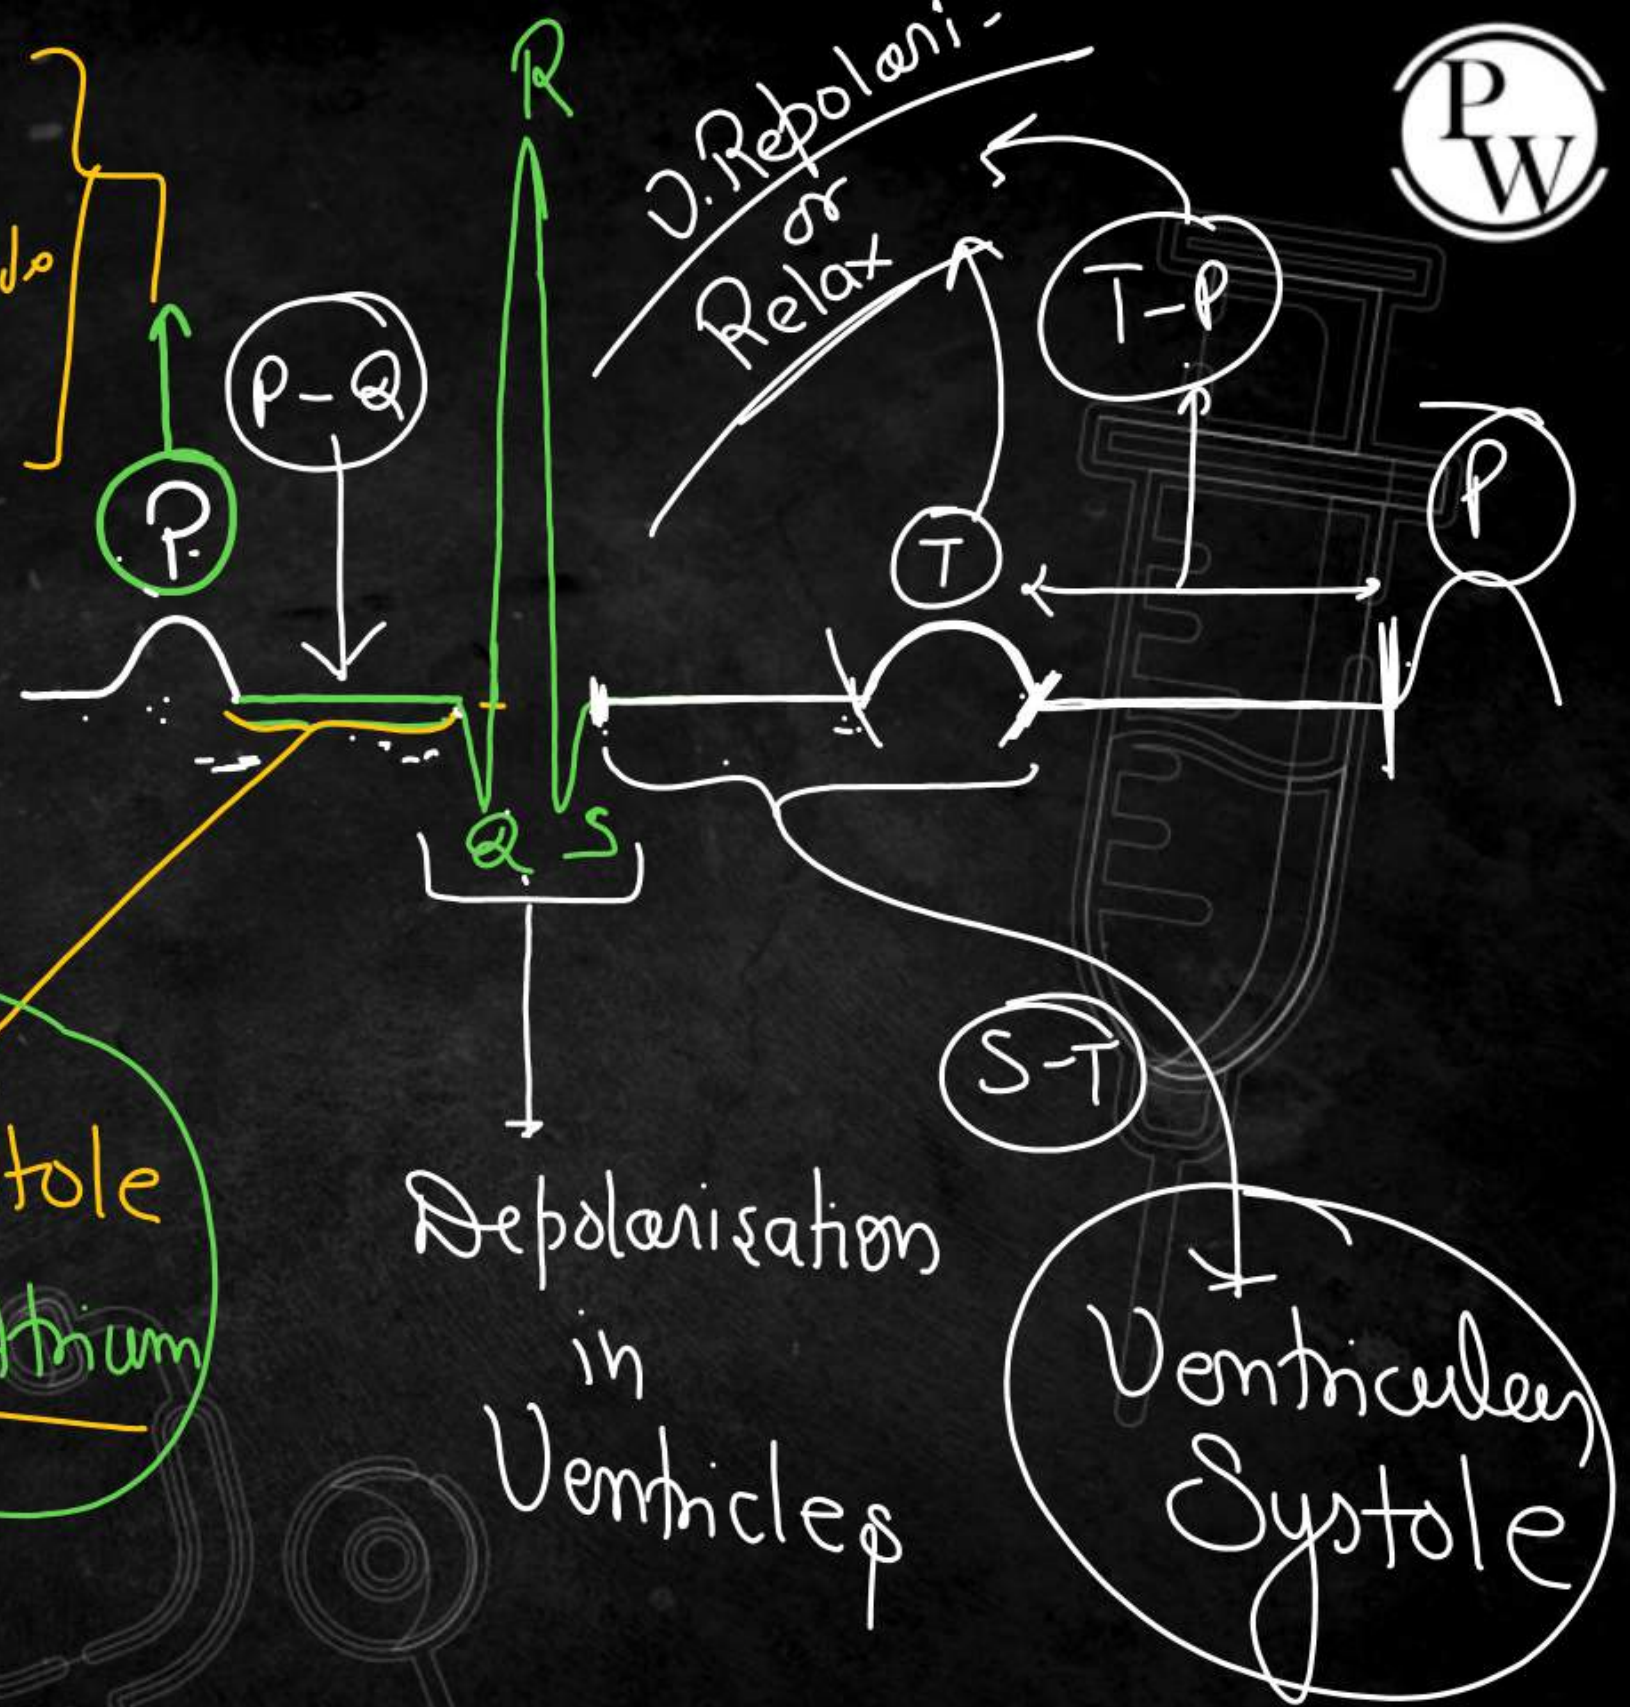 R
V. Repolari-
or
Relax
P
W
T-P
P-Q
P
P
T
Q S
S-T
tole
trium
Depolarisation
in
Ventricles
Ventricular
Systole